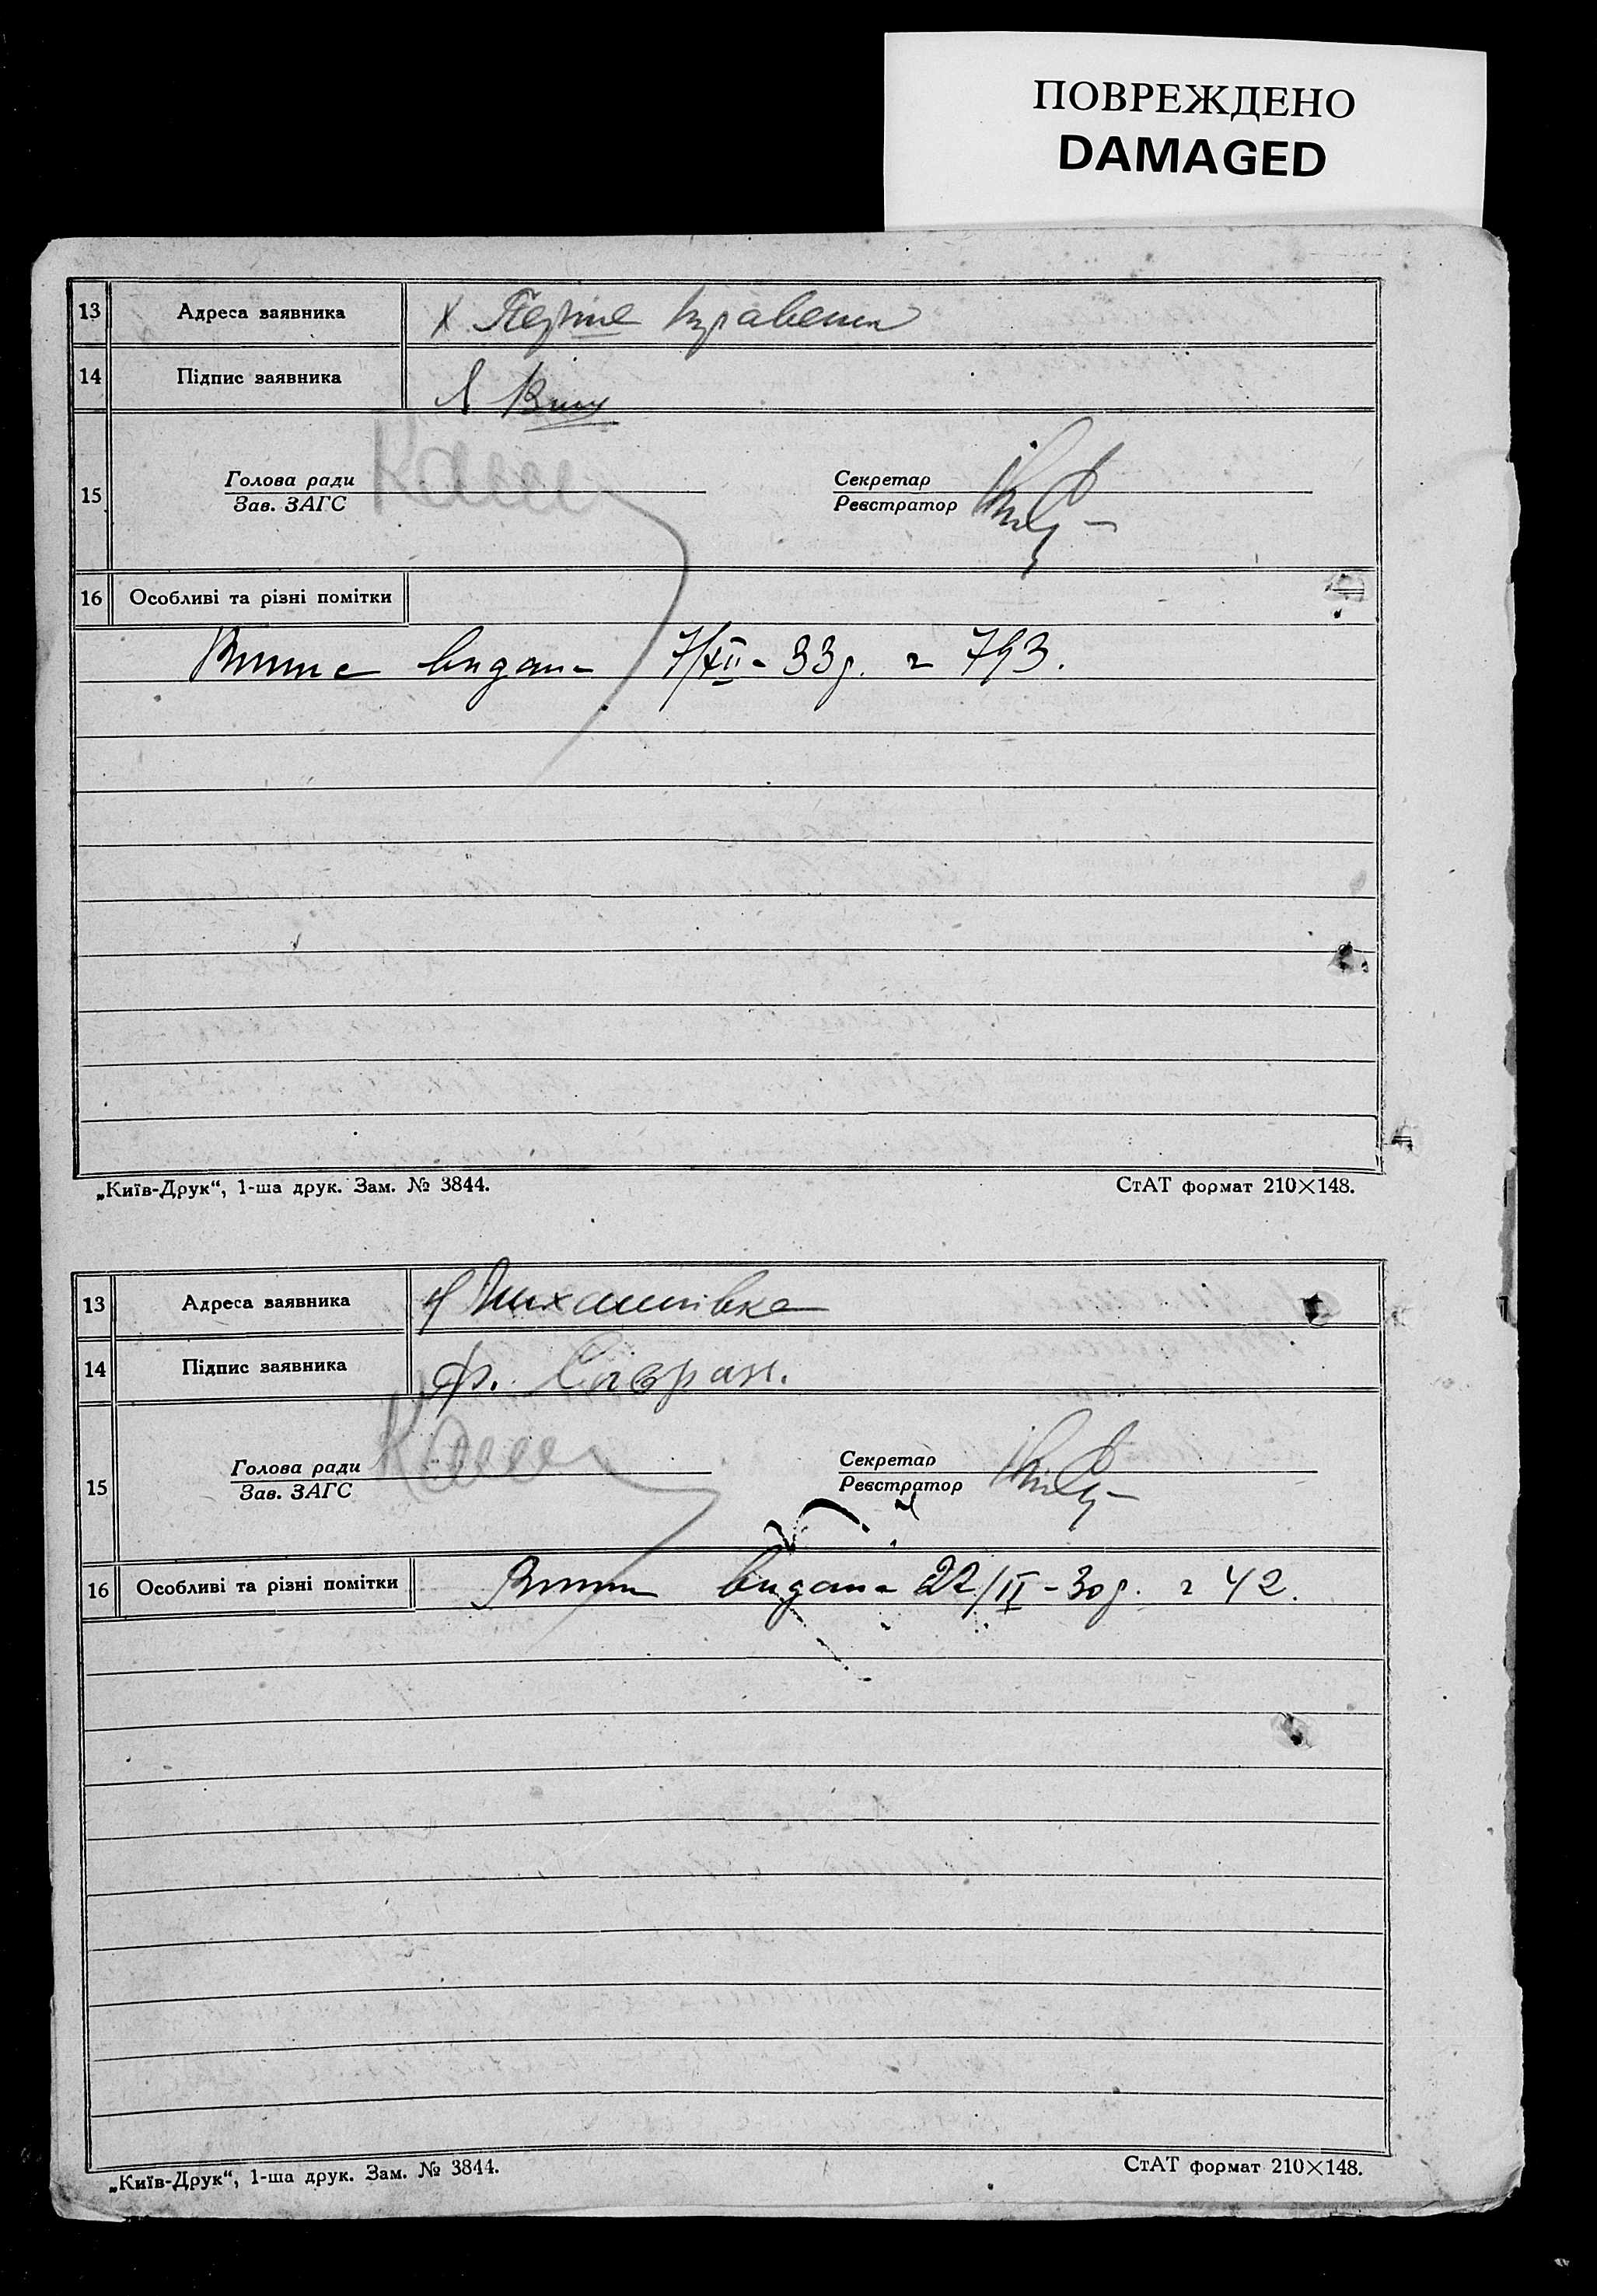 ПОВРЕЖДЕНО
DAMAGED
13 Адреса заявника х. Перше
14 Підпис заявника
Голова ради Секретар
15
Зав. ЗАГС Реєстратор
16 Особливі та різні помітки
видана 7/XII - 33р.
„Київ-Друк“, 1-ша друк. Зам. № 3844. СтАТ формат 210×148.
13 Адреса заявника Михайлівка
14 Підпис заявника
Голова ради Секретар
15
Зав. ЗАГС Реєстратор
16 Особливі та різні помітки видана 22/II - 30р. 42.
„Київ-Друк“, 1-ша друк. Зам. № 3844. СтАТ формат 210×148.